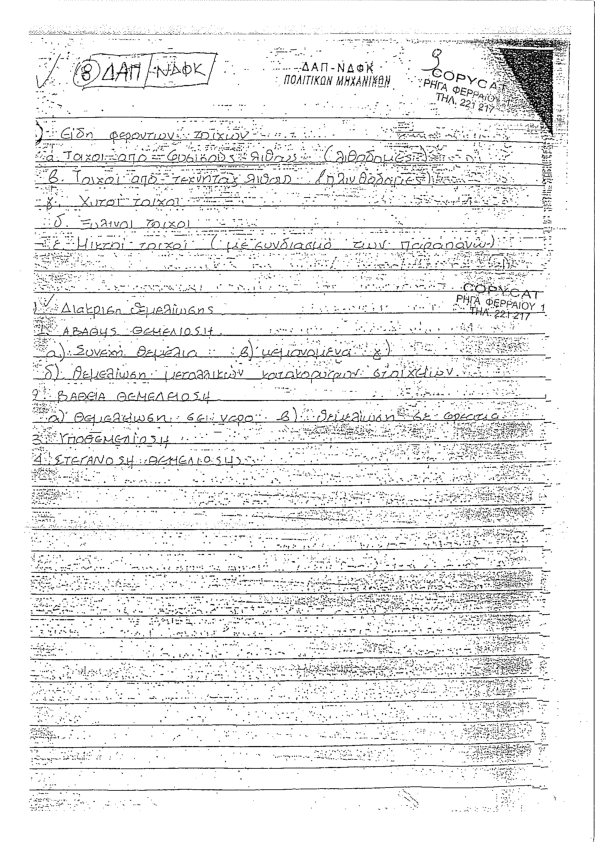 8 ΔΑΠ-ΝΔΦΚ
ΔΑΠ-ΝΔΦΚ
ΠΟΛΙΤΙΚΩΝ ΜΗΧΑΝΙΚΩΝ
9
COPYCAT
ΡΗΓΑ ΦΕΡΡΑΙΟΥ
ΤΗΛ. 221 217
) Είδη φεροντων τοίχων
α. Τοιχοι από φυσικούς λίθους (λιθοδομές)
β. Τοιχοι από τεχνητούς λίθους (πλινθοδομές)
γ. Χυτοί τοιχοι
δ. Ξυλινοι τοιχοι
ε. Μικτοι τοιχοι (με συνδιασμό των παραπανω)
COPYCAT
ΡΗΓΑ ΦΕΡΡΑΙΟΥ 1
ΤΗΛ. 221 217
Διακριση θεμελίωσης
1. ΑΒΑΘΗΣ ΘΕΜΕΛΙΟΣΗ
α) Συνεχή θεμέλια β) μεμονομένα γ)
δ) θεμελίωση μεταλλικών κατακορύφων στοιχείων
2. ΒΑΘΕΙΑ ΘΕΜΕΛΕΙΟΣΗ
α) θεμελείωση σε νερο β) θεμελίωση σε φρεατα
3. ΥΠΟΘΕΜΕΛΙΟΣΗ
4. ΣΤΕΓΑΝΟΣΗ ΘΕΜΕΛΙΟΣΗΣ